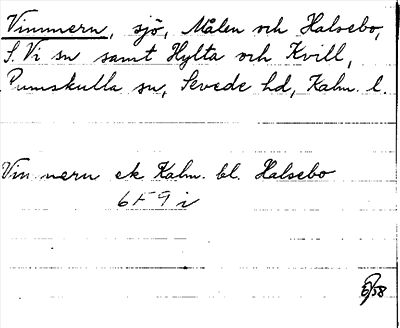 Vimmern, sjö, Målen och Halsebo,
S. Vi sn samt Hylta och Kvill,
Rumskulla sn, Sevede hd, Kalm. l.
Vimmern ek Kalm. bl. Halsebo
6F 9i
58